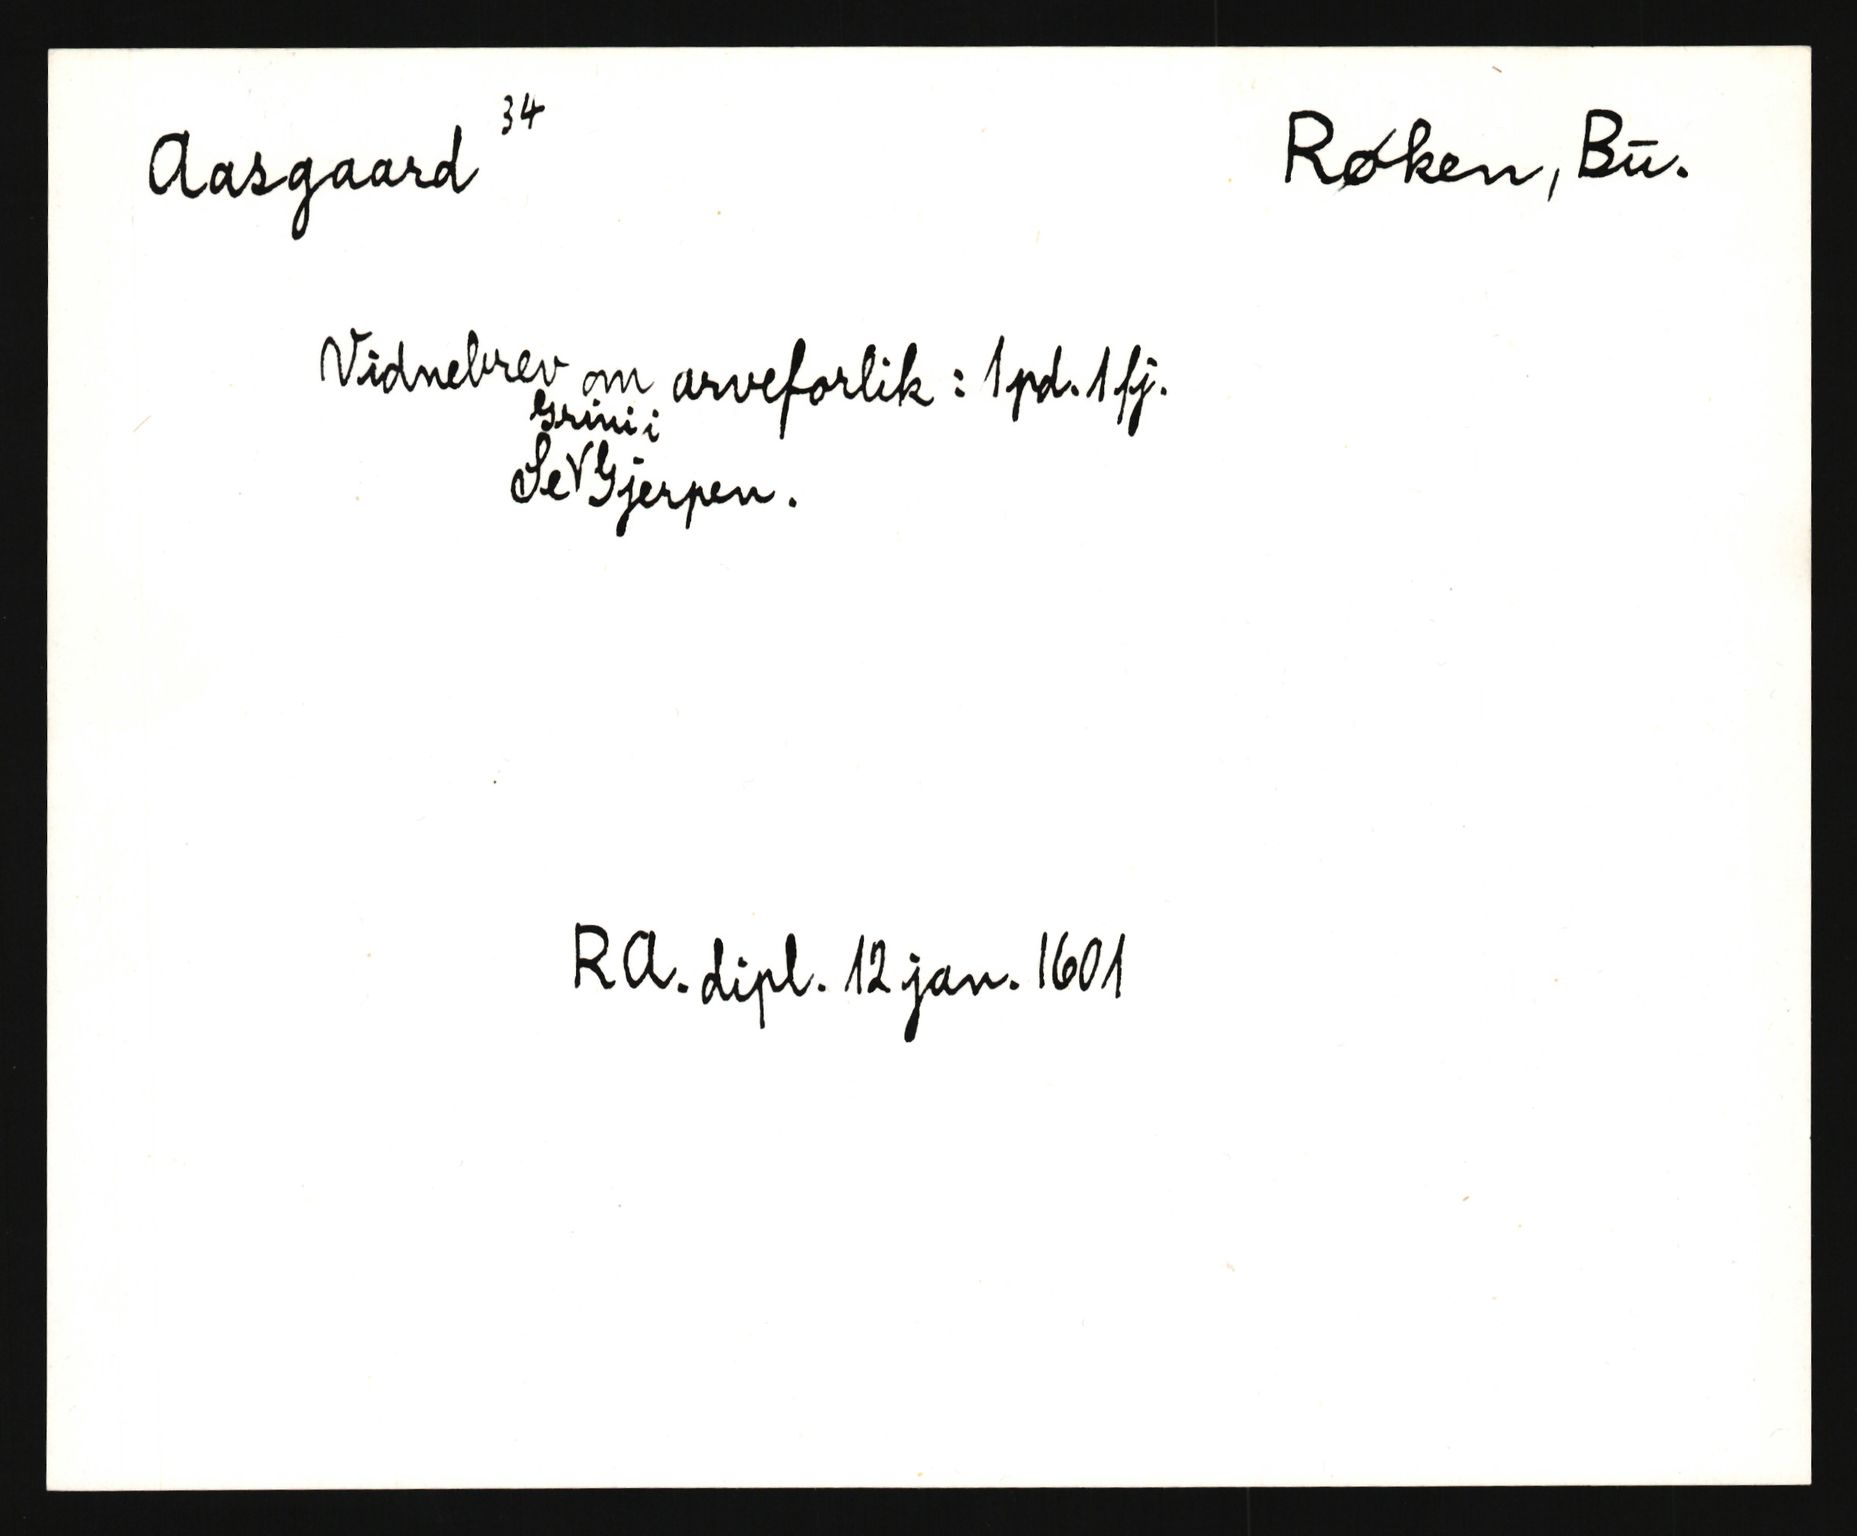 Aasgaard 34 Røken, Bu.
Vidnebrev om arveforlik: 1 pd. 1 fj.
Grini i
Se V Gjerpen.
RA. dipl. 12 jan. 1601